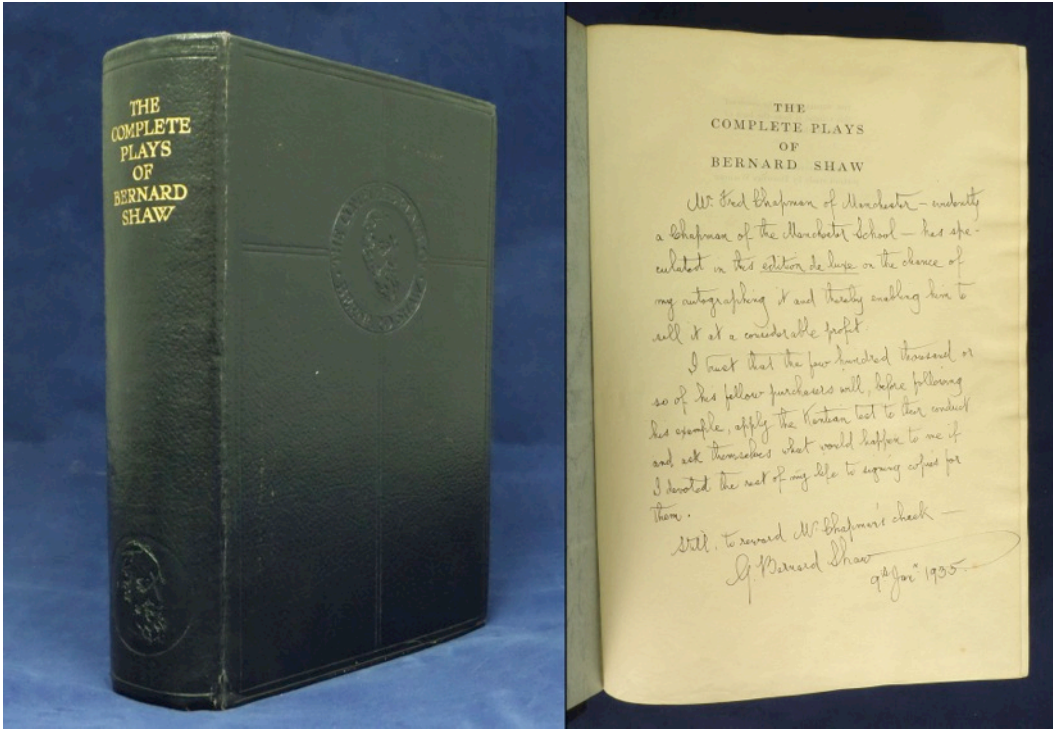 THE
COMPLETE
PLAYS
OF
BERNARD
SHAW
THE
COMPLETE PLAYS
OF
BERNARD SHAW
Mr Fred Chapman of Manchester — evidently
a Chapman of the Manchester School — has spe-
culated in this edition de luxe on the chance of
my autographing it and thereby enabling him to
sell it at a considerable profit.
I trust that the few hundred thousand or
so of his fellow purchasers will, before following
his example, apply the Kantian test to their conduct
and ask themselves what would happen to me if
I devoted the rest of my life to signing copies for
them.
Still, to reward Mr Chapman's cheek —
G. Bernard Shaw
9th Jany 1935.